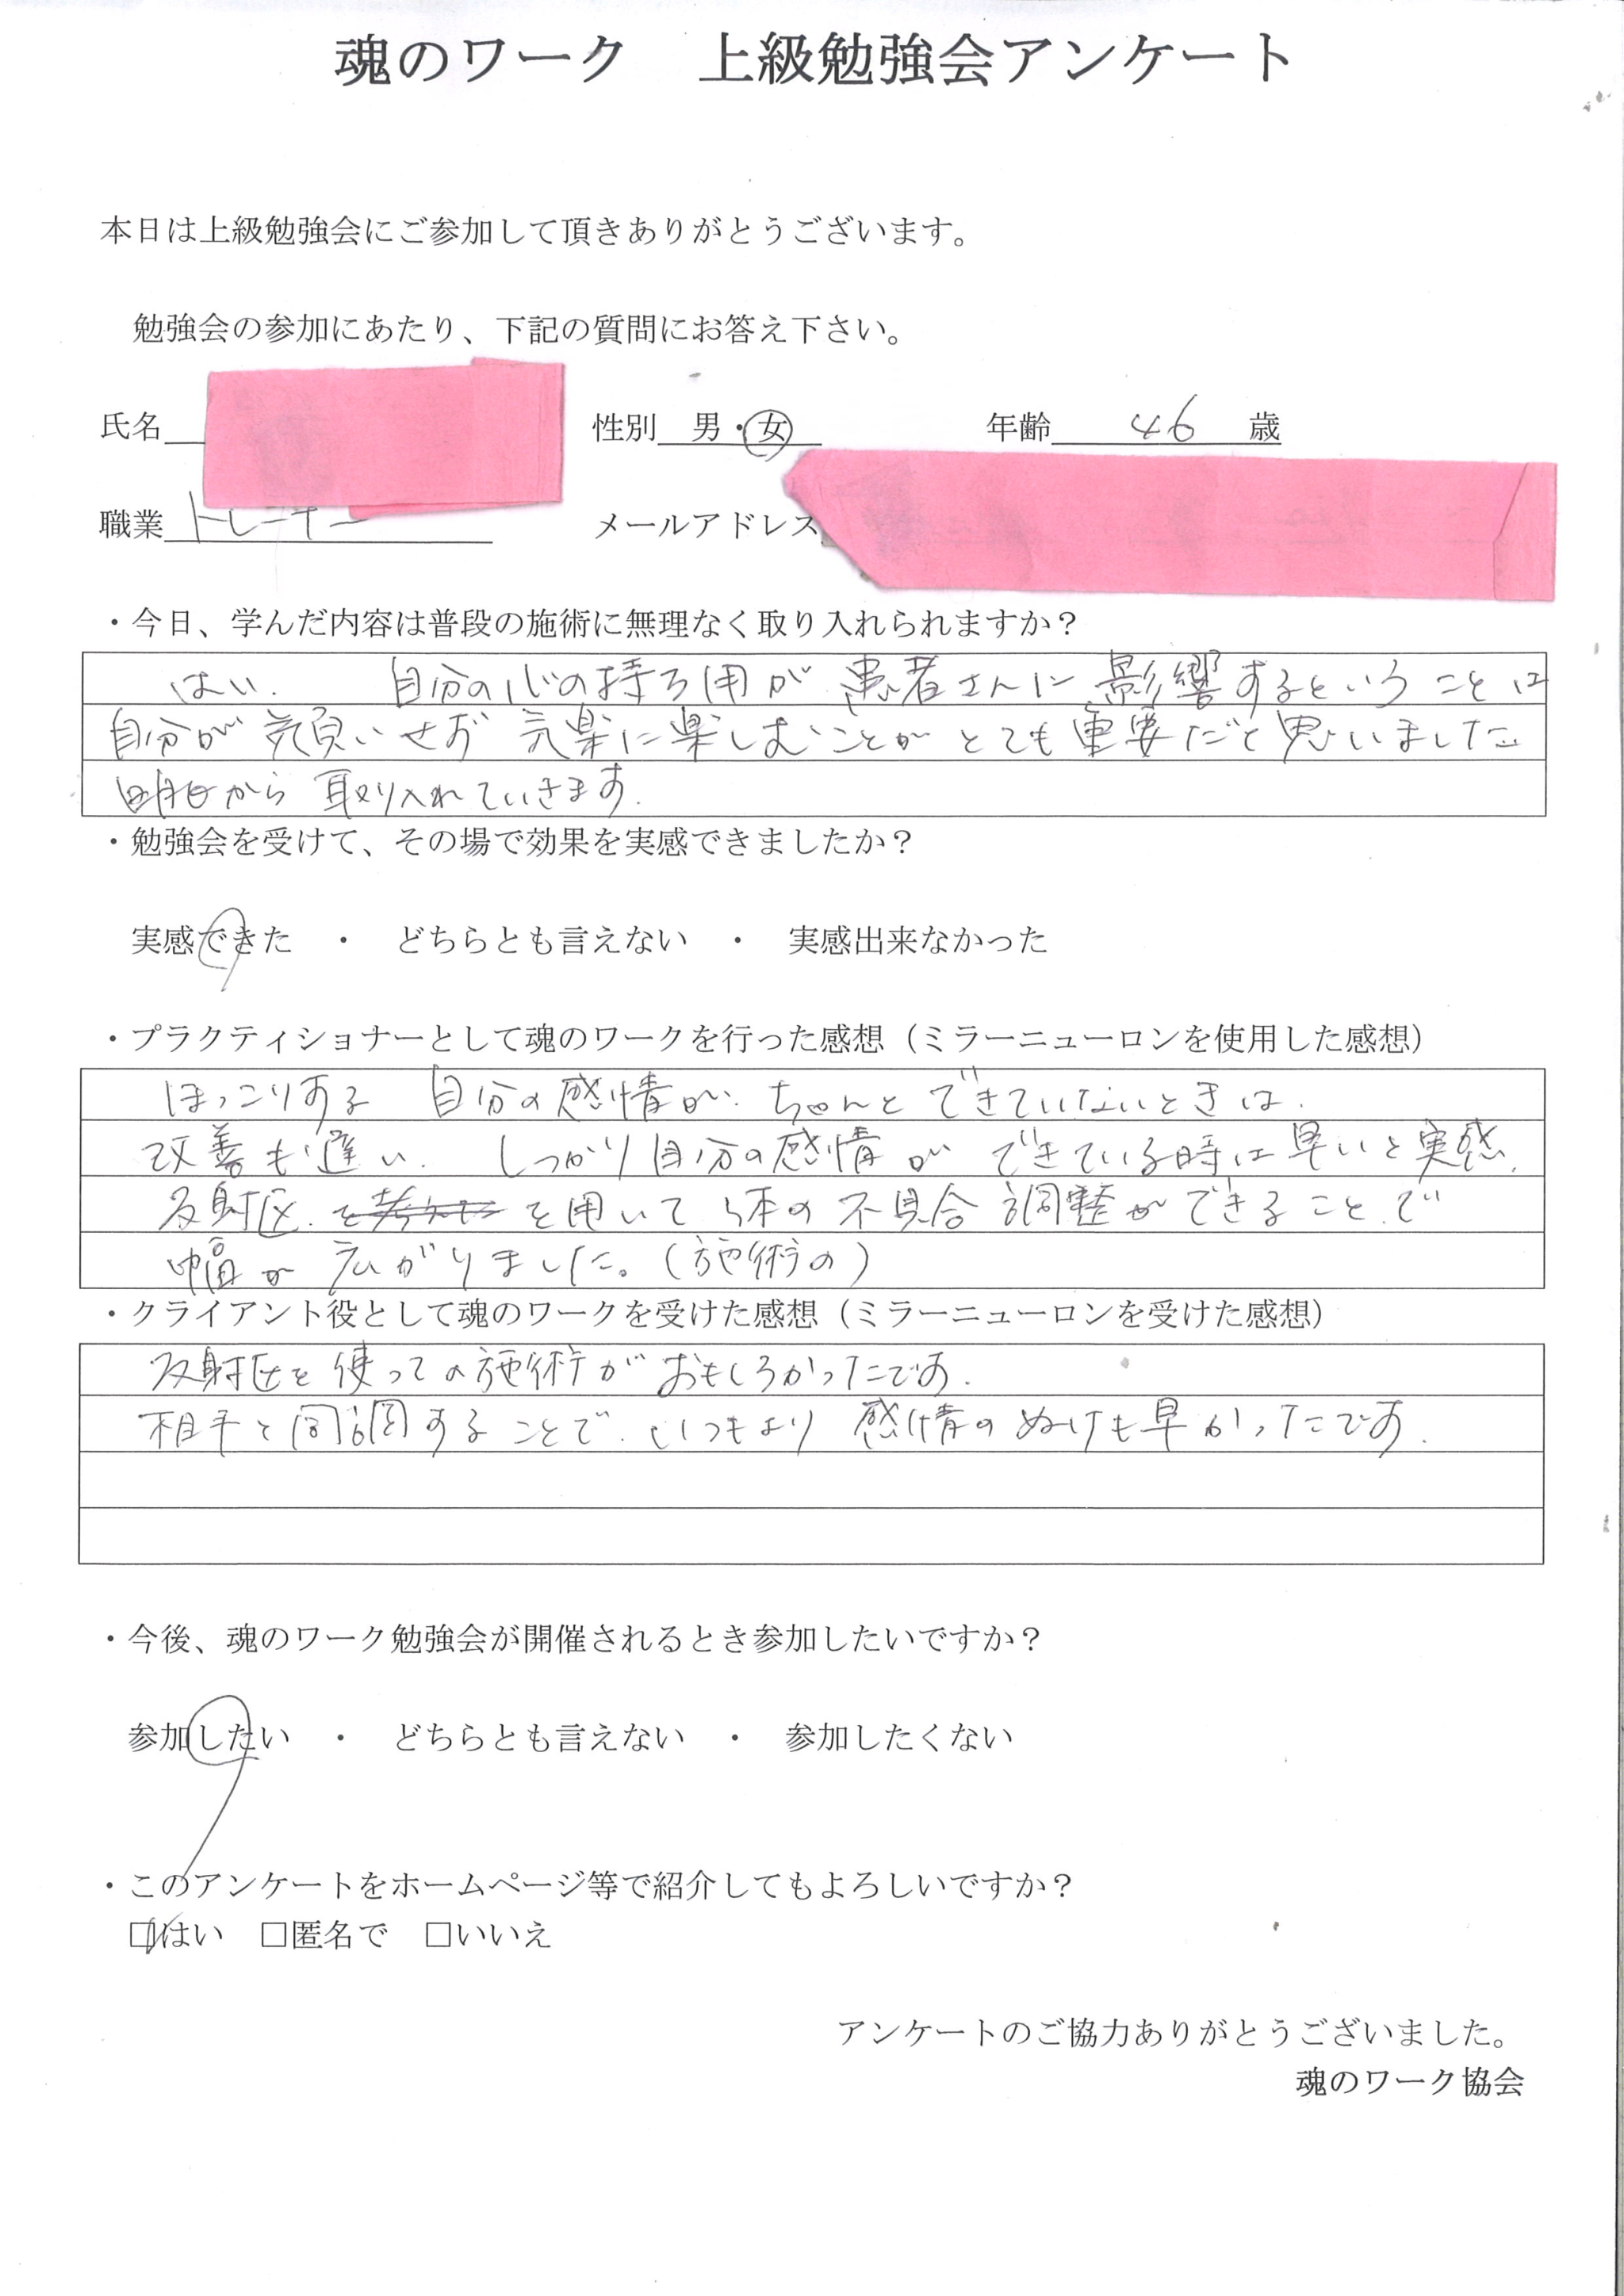 魂のワーク　上級勉強会アンケート
本日は上級勉強会にご参加して頂きありがとうございます。
勉強会の参加にあたり、下記の質問にお答え下さい。
氏名　性別　男・女　年齢　46　歳
職業　トレーナー　メールアドレス
・今日、学んだ内容は普段の施術に無理なく取り入れられますか？
はい.　自分の心の持ち用が患者さんに影響するということは
自分が気負いせず気楽に楽しむことがとても重要だと思いました
明日から取り入れていきます.
・勉強会を受けて、その場で効果を実感できましたか？
実感できた　・　どちらとも言えない　・　実感出来なかった
・プラクティショナーとして魂のワークを行った感想（ミラーニューロンを使用した感想）
ほっこりする　自分の感情が.ちゃんとできていないときは.
改善も遅い.　しっかり自分の感情ができている時は早いと実感.
反射区.を用いて体の不具合調整ができること.で
幅が広がりました。（施術の）
・クライアント役として魂のワークを受けた感想（ミラーニューロンを受けた感想）
反射区を使っての施術がおもしろかったです.
相手と同調することで.いつもより感情のぬけも早かったです.
・今後、魂のワーク勉強会が開催されるとき参加したいですか？
参加したい　・　どちらとも言えない　・　参加したくない
・このアンケートをホームページ等で紹介してもよろしいですか？
□はい　□匿名で　□いいえ
アンケートのご協力ありがとうございました。
魂のワーク協会